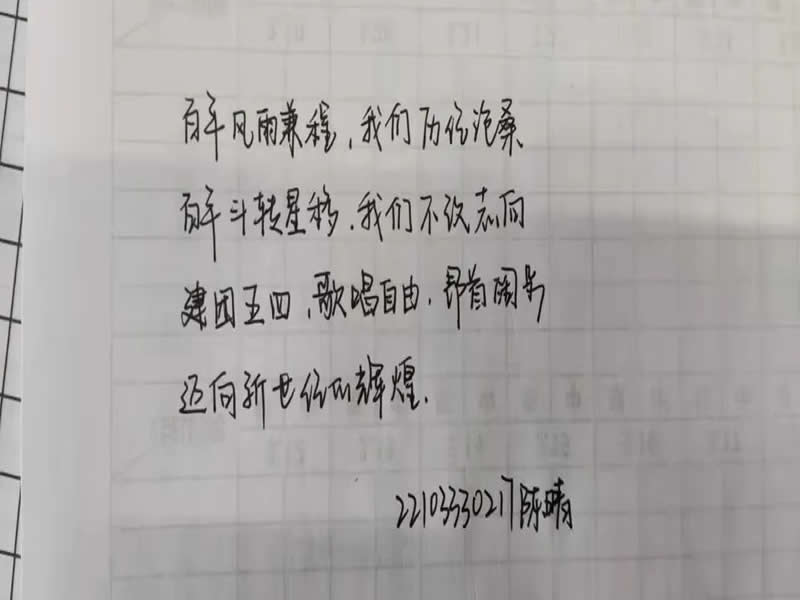 百年风雨兼程，我们历经沧桑
百年斗转星移，我们不改志向
建团五四，歌唱自由，昂首阔步
迈向新世纪的辉煌.
22103330217陈晴